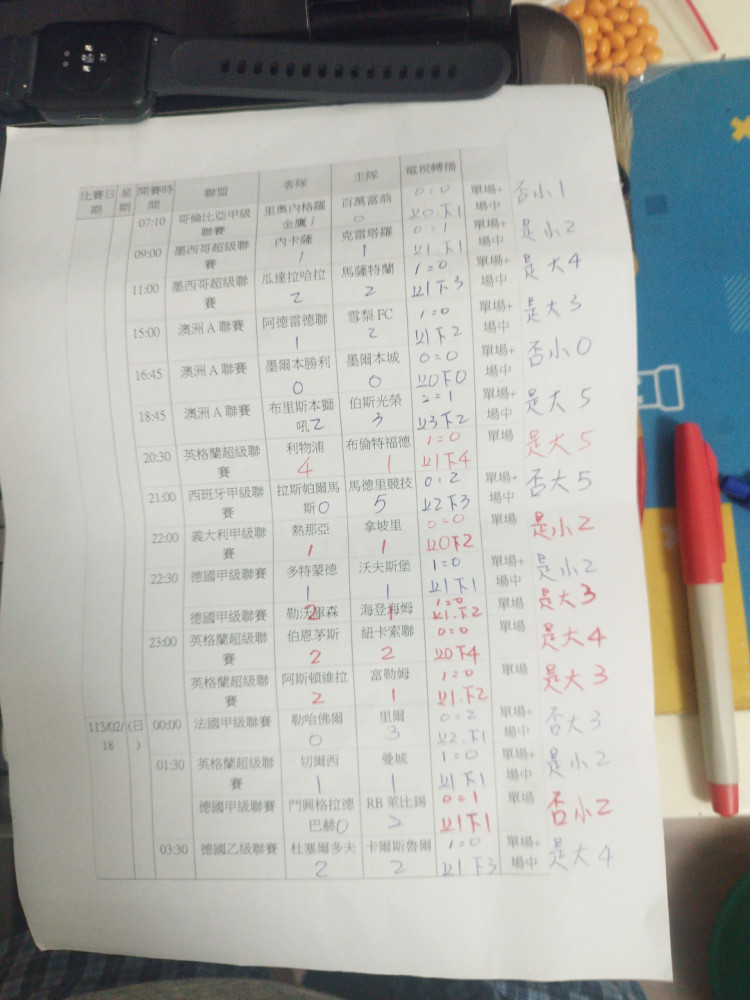 比賽日期 星期 開賽時間 聯盟 客隊 主隊 電視轉播
07:10 哥倫比亞甲級聯賽 里奧內格羅金鷹 1 百萬富翁 0 0=0 上0.下1 單場+場中 否小1
09:00 墨西哥超級聯賽 內卡薩 1 克雷塔羅 1 0=1 上1.下1 單場+場中 是小2
11:00 墨西哥超級聯賽 瓜達拉哈拉 2 馬薩特蘭 2 1=0 上1下3 單場+場中 是大4
15:00 澳洲A聯賽 阿德雷德聯 1 雪梨FC 2 1=0 上1下2 單場+場中 是大3
16:45 澳洲A聯賽 墨爾本勝利 0 墨爾本城 0 0=0 上0下0 單場+場中 否小0
18:45 澳洲A聯賽 布里斯本獅吼 2 伯斯光榮 3 2=1 上3下2 單場+場中 是大5
20:30 英格蘭超級聯賽 利物浦 4 布倫特福德 1 1=0 上1下4 單場 是大5
21:00 西班牙甲級聯賽 拉斯帕爾馬斯 0 馬德里競技 5 0=2 上2下3 單場+場中 否大5
22:00 義大利甲級聯賽 熱那亞 1 拿坡里 1 0=0 上0下2 單場 是小2
22:30 德國甲級聯賽 多特蒙德 1 沃夫斯堡 1 1=0 上1下1 單場+場中 是小2
德國甲級聯賽 勒沃庫森 2 海登海姆 1 1=0 上1.下2 單場 是大3
23:00 英格蘭超級聯賽 伯恩茅斯 2 紐卡索聯 2 0=0 上0下4 單場 是大4
英格蘭超級聯賽 阿斯頓維拉 2 富勒姆 1 1=0 上1.下2 單場 是大3
113/02/18 (日) 00:00 法國甲級聯賽 勒哈佛爾 0 里爾 3 0=2 上2.下1 單場+場中 否大3
01:30 英格蘭超級聯賽 切爾西 1 曼城 1 1=0 上1下1 單場+場中 是小2
德國甲級聯賽 門興格拉德巴赫 0 RB萊比錫 2 0=1 上1下1 單場 否小2
03:30 德國乙級聯賽 杜塞爾多夫 2 卡爾斯魯爾 2 1=0 上1下3 單場+場中 是大4